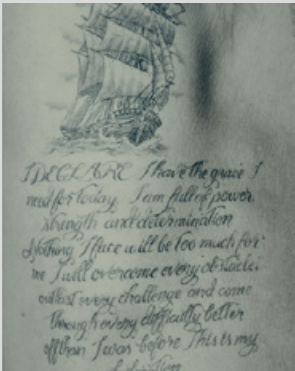 I DECLARE I have the grace I
need for today. I am full of power,
strength and determination
Nothing I face will be too much for
me I will overcome every obstacle,
outlast every challenge and come
through every difficulty better
off than I was before This is my